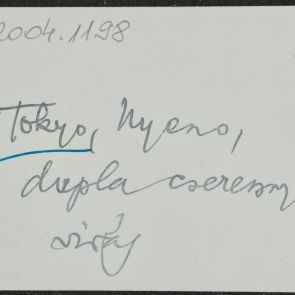 2004.1198
Tokyo, Uyeno,
dupla cseresny
virág